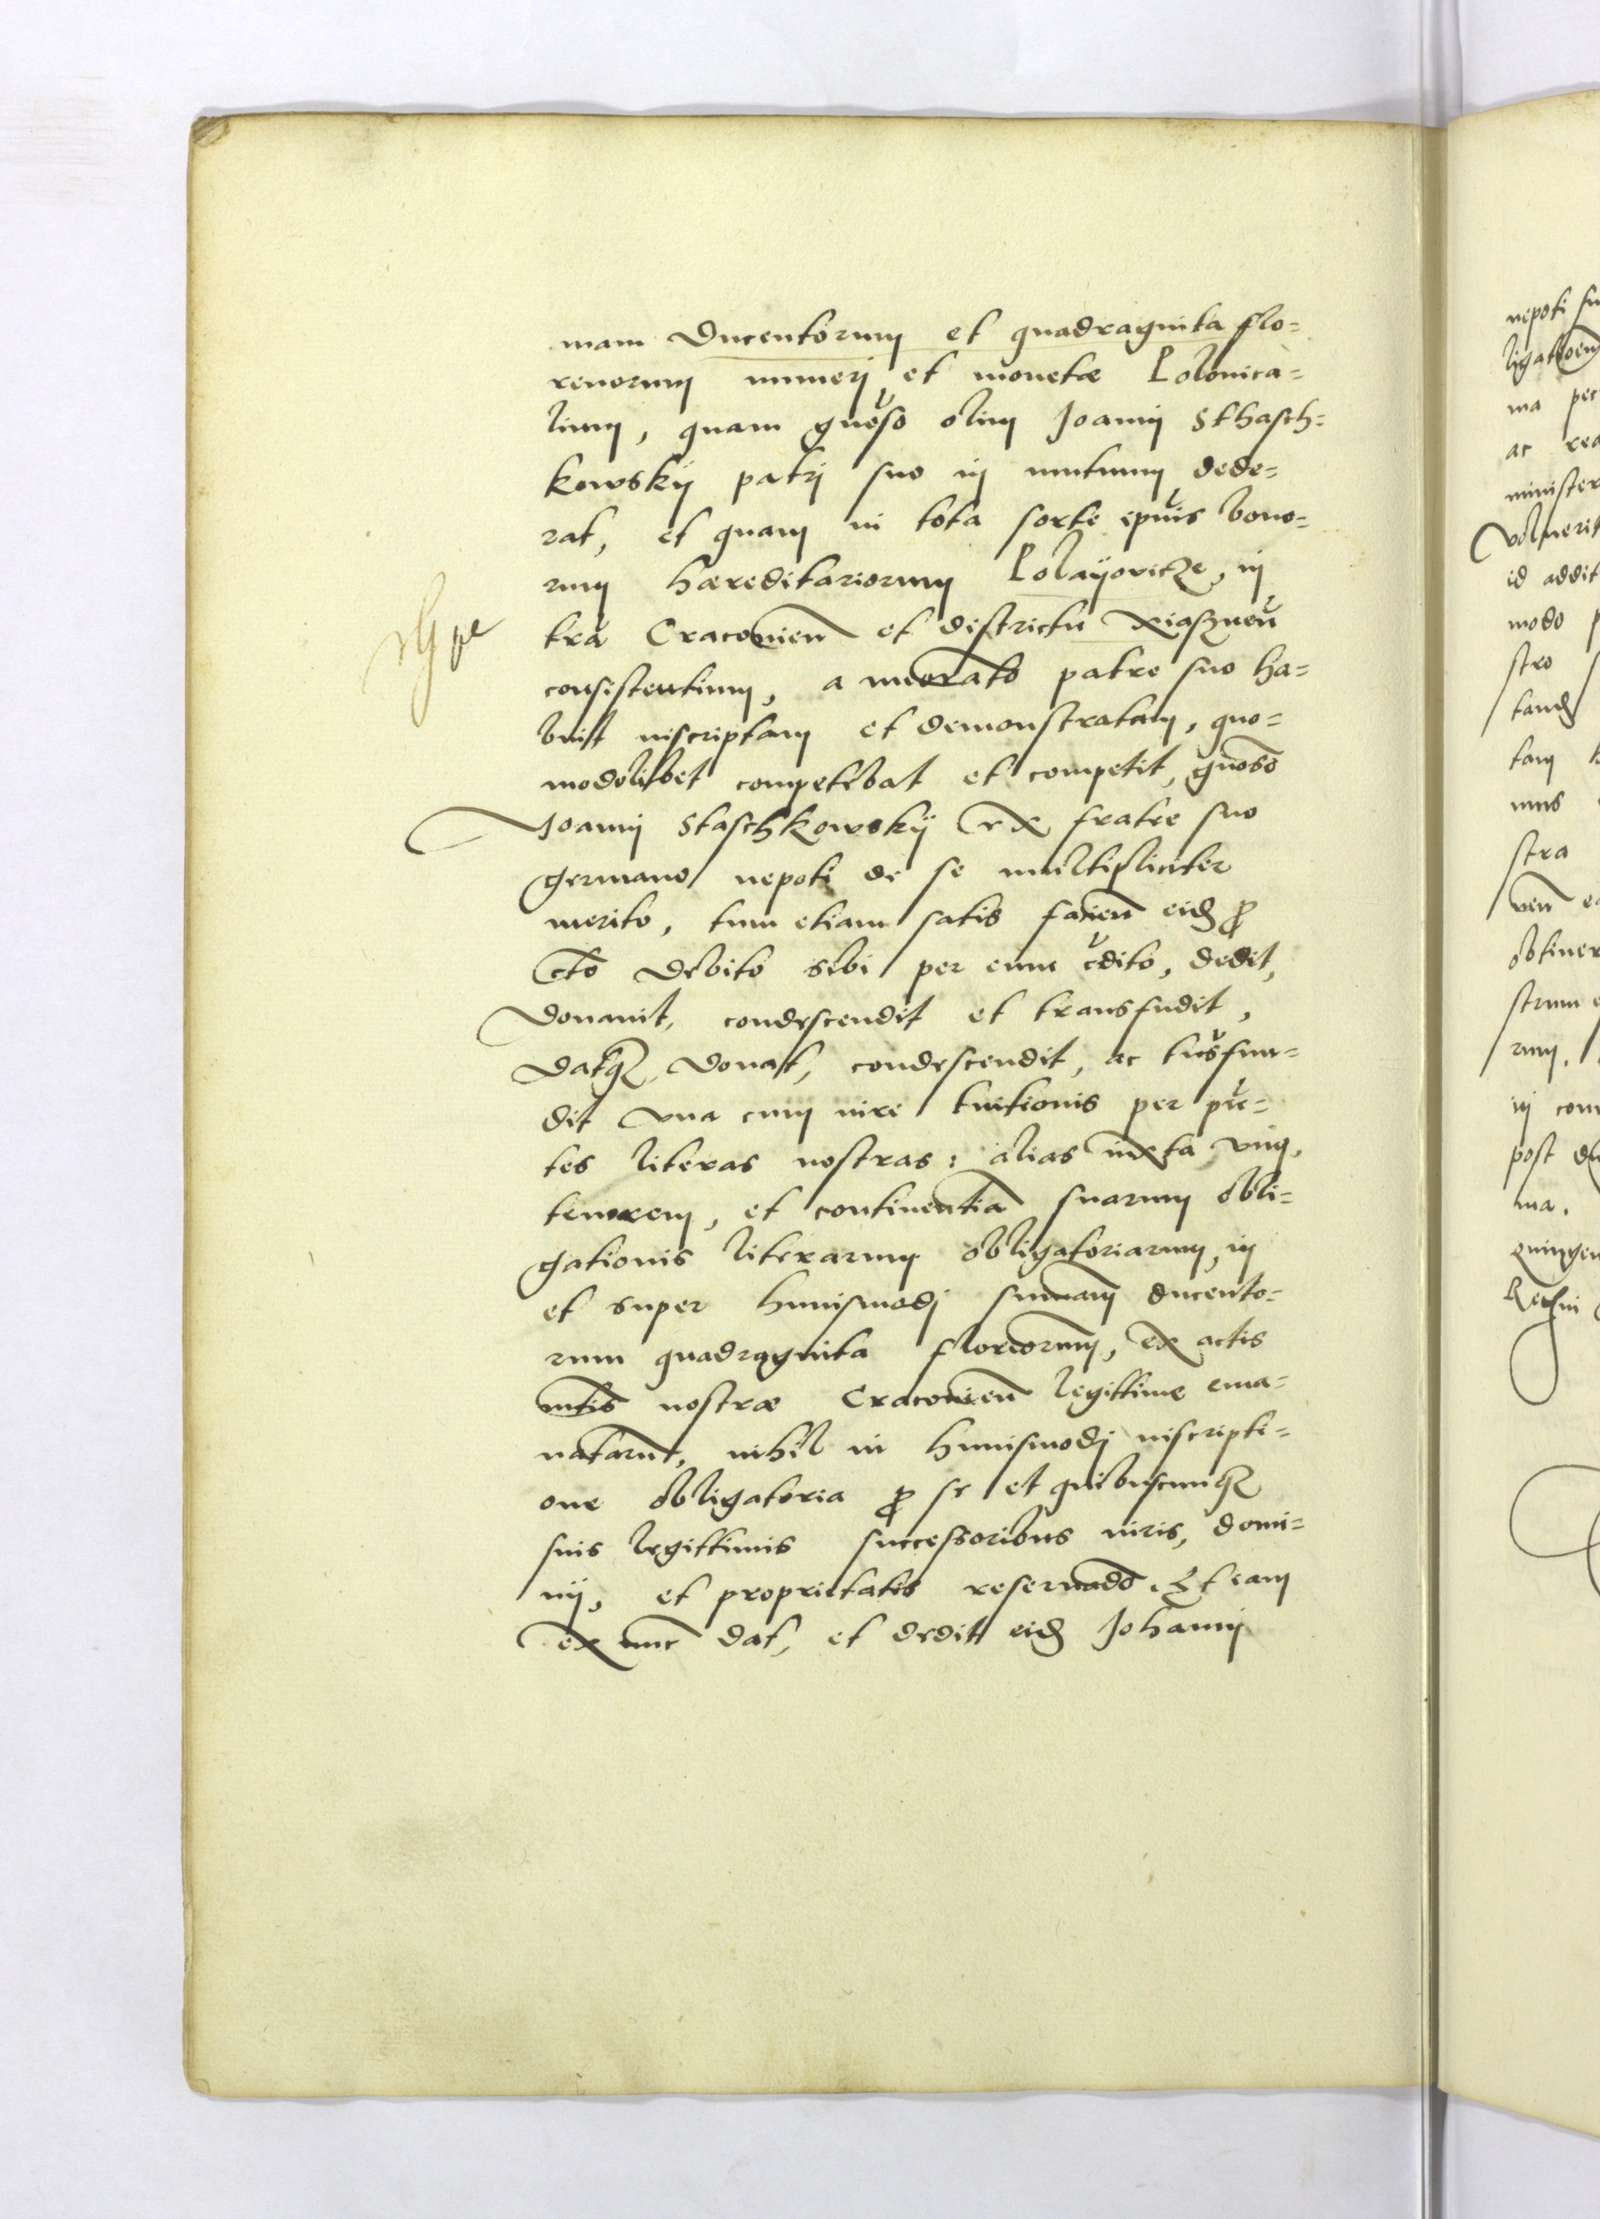 mam Ducentorum et quadraginta flo=
renorum numeri et monetæ Polonica=
lium, quam gnoso olim Joanni Sthasch=
kowskij patri suo in mutuum dede=
rat, et quam in tota sorte ipius bono=
rum hæreditariorum Polayovicze, in
tra Cracovien et districtu Xiasznen
consistentium, a meorato patre suo ha=
buit inscriptam et demonstratam, quo=
modolibet competebat et competit, gnoso
Joanni Staschkowskij ex fratre suo
germano nepoti de se multipliciter
merito, tum etiam satis facien eid p
cto debito sibi per eum cdito, dedit,
donavit, condescendit et transfudit,
datq donat, condescendit, ac tnsfun=
dit vna cum iure tuitionis per pn=
tes literas nostras: alias iuxta vim,
tenorem, et continentia suarum obli=
gationis literarum obligatoriarum, in
et super huiusmodi summam ducento=
rum quadraginta florenorum, ex actis
nostræ Cracovien legittime ema=
natarum, nihil in huiusmodi inscripti=
one obligatoria p se et quibuscunq
suis legittimis successoribus iuris, domi=
nij, et proprietatis reservado. Et eam
ex nunc dat, et dedit eid Johanni
nepoti
ma
ac
minister
id addit
modo
stro
tam
mus
stra
ven
strum
rum.
in
post
ma.